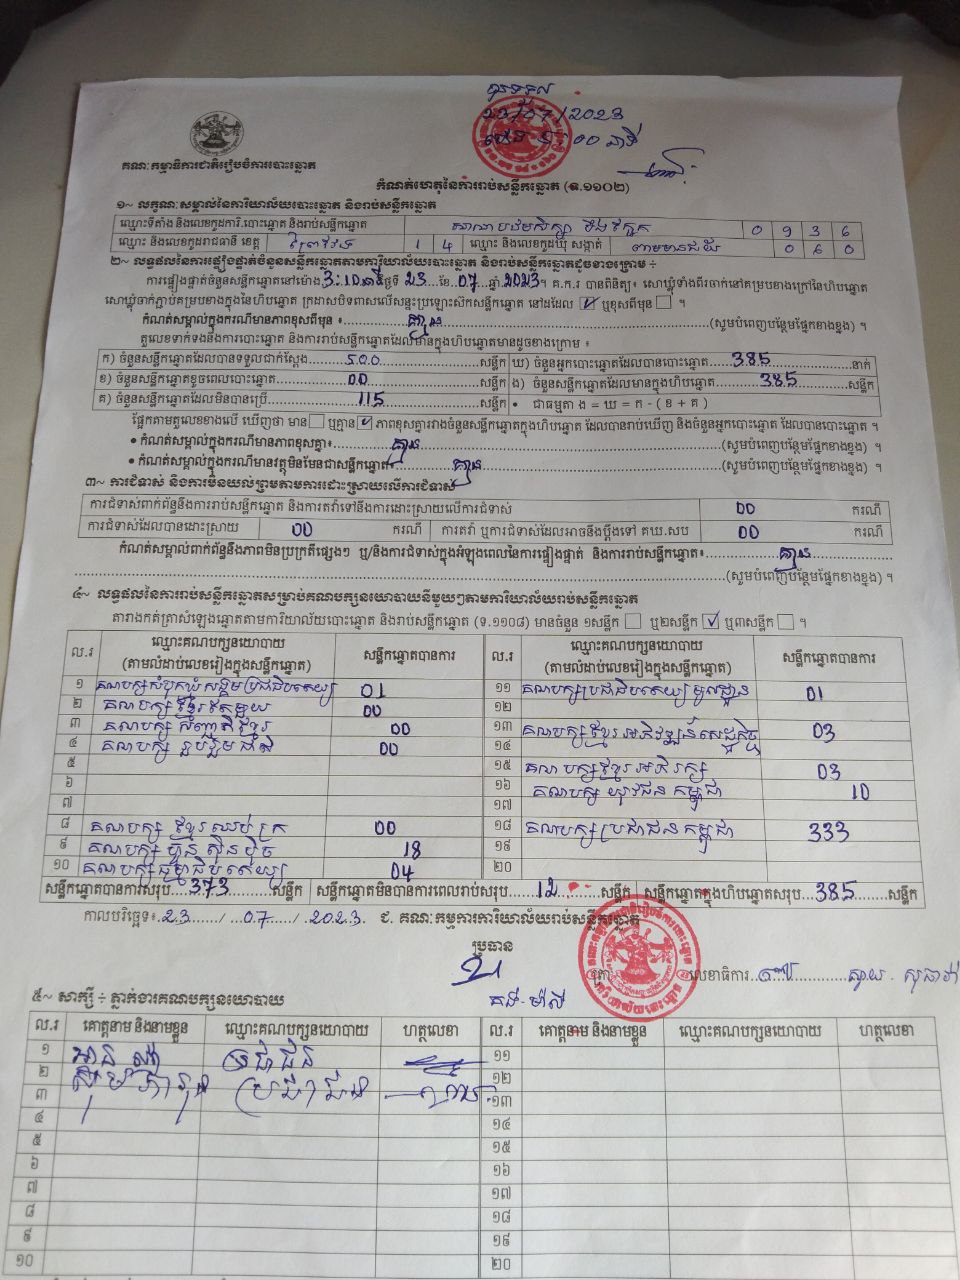 ជូនទទួល
23/07/2023
គណៈកម្មាធិការជាតិរៀបចំការបោះឆ្នោត
កំណត់ហេតុនៃការរាប់សន្លឹកឆ្នោត (ទ.១១០២)
១~ លក្ខណៈសម្គាល់នៃការិយាល័យបោះឆ្នោត និងរាប់សន្លឹកឆ្នោត
ឈ្មោះទីតាំង និងលេខកូដការិ.បោះឆ្នោត និងរាប់សន្លឹកឆ្នោត 0 9 3 6
ឈ្មោះ និងលេខកូដរាជធានី ខេត្ត ព្រៃវែង 1 4 ឈ្មោះ និងលេខកូដឃុំ សង្កាត់ ពាមមានជ័យ 0 6 0
២~ លទ្ធផលនៃការផ្ទៀងផ្ទាត់ចំនួនសន្លឹកឆ្នោតតាមការិយាល័យបោះឆ្នោត និងរាប់សន្លឹកឆ្នោតដូចខាងក្រោម ÷
ការផ្ទៀងផ្ទាត់ចំនួនសន្លឹកឆ្នោតនៅម៉ោង 3:10 នាទី ថ្ងៃទី 23 ខែ 07 ឆ្នាំ 2023។ គ.ក.រ បានពិនិត្យ៖ សោឃ្លុំទាំងពីរចាក់នៅគម្របខាងក្រៅនៃហិបឆ្នោត
សោឃ្លុំចាក់ភ្ជាប់គម្របខាងក្នុងនៃហិបឆ្នោត ក្រដាសបិទពាសលើសន្ទះប្រឡោះសិកសន្លឹកឆ្នោត នៅដដែល ☑ ឬខុសពីមុន ☐ ។
កំណត់សម្គាល់ក្នុងករណីមានភាពខុសពីមុន ៖ គ្មាន (សូមបំពេញបន្ថែមផ្នែកខាងខ្នង) ។
តួលេខទាក់ទងនឹងការបោះឆ្នោត និងការរាប់សន្លឹកឆ្នោតដែលមានក្នុងហិបឆ្នោតមានដូចខាងក្រោម ៖
ក) ចំនួនសន្លឹកឆ្នោតដែលបានទទួលជាក់ស្តែង 500 សន្លឹក ឃ) ចំនួនអ្នកបោះឆ្នោតដែលបានបោះឆ្នោត 385 នាក់
ខ) ចំនួនសន្លឹកឆ្នោតខូចពេលបោះឆ្នោត 00 សន្លឹក ង) ចំនួនសន្លឹកឆ្នោតដែលមានក្នុងហិបឆ្នោត 385 សន្លឹក
គ) ចំនួនសន្លឹកឆ្នោតដែលមិនបានប្រើ 115 សន្លឹក • ជាធម្មតា ង = ឃ = ក - ( ខ + គ )
ផ្អែកតាមតួលេខខាងលើ ឃើញថា មាន ☐ ឬគ្មាន ☑ ភាពខុសគ្នារវាងចំនួនសន្លឹកឆ្នោតក្នុងហិបឆ្នោត ដែលបានរាប់ឃើញ និងចំនួនអ្នកបោះឆ្នោត ដែលបានបោះឆ្នោត ។
• កំណត់សម្គាល់ក្នុងករណីមានភាពខុសគ្នា៖ គ្មាន (សូមបំពេញបន្ថែមផ្នែកខាងខ្នង) ។
• កំណត់សម្គាល់ក្នុងករណីមានវត្ថុមិនមែនជាសន្លឹកឆ្នោត គ្មាន (សូមបំពេញបន្ថែមផ្នែកខាងខ្នង) ។
៣~ ការជំទាស់ និងការមិនយល់ព្រមតាមការដោះស្រាយលើការជំទាស់
ការជំទាស់ពាក់ព័ន្ធនឹងការរាប់សន្លឹកឆ្នោត និងការតវ៉ាទៅនឹងការដោះស្រាយលើការជំទាស់ 00 ករណី
ការជំទាស់ដែលបានដោះស្រាយ 00 ករណី ការតវ៉ា ឬការជំទាស់ដែលអាចនឹងប្តឹងទៅ គឃ.សប 00 ករណី
កំណត់សម្គាល់ពាក់ព័ន្ធនឹងភាពមិនប្រក្រតីផ្សេងៗ ឬ/និងការជំទាស់ក្នុងអំឡុងពេលនៃការផ្ទៀងផ្ទាត់ និងការរាប់សន្លឹកឆ្នោត៖ គ្មាន
(សូមបំពេញបន្ថែមផ្នែកខាងខ្នង) ។
៤~ លទ្ធផលនៃការរាប់សន្លឹកឆ្នោតសម្រាប់គណបក្សនយោបាយនីមួយៗតាមការិយាល័យរាប់សន្លឹកឆ្នោត
តារាងកត់ត្រាសំឡេងឆ្នោតតាមការិយាល័យបោះឆ្នោត និងរាប់សន្លឹកឆ្នោត (ទ.១១០៨) មានចំនួន ១សន្លឹក ☐ ឬ២សន្លឹក ☑ ឬ៣សន្លឹក ☐ ។
ល.រ ឈ្មោះគណបក្សនយោបាយ (តាមលំដាប់លេខរៀងក្នុងសន្លឹកឆ្នោត) សន្លឹកឆ្នោតបានការ ល.រ ឈ្មោះគណបក្សនយោបាយ (តាមលំដាប់លេខរៀងក្នុងសន្លឹកឆ្នោត) សន្លឹកឆ្នោតបានការ
១ គណបក្សសំបុកឃ្មុំសង្គមប្រជាធិបតេយ្យ 01 ១១ គណបក្សប្រជាធិបតេយ្យមូលដ្ឋាន 01
២ គណបក្ស ខ្មែរតែមួយ 00 ១២
៣ គណបក្ស សញ្ជាតិខ្មែរ 00 ១៣ គណបក្សខ្មែរអភិវឌ្ឍន៍សេដ្ឋកិច្ច 03
៤ គណបក្ស រួបរួមជាតិ 00 ១៤
៥ ១៥ គណបក្សខ្មែរអភិរក្ស 03
៦ ១៦ គណបក្ស យុវជនកម្ពុជា 10
៧ ១៧
៨ គណបក្ស ខ្មែរឈប់ក្រ 00 ១៨ គណបក្សប្រជាជនកម្ពុជា 333
៩ គណបក្ស ហ្វ៊ុនស៊ិនប៉ិច 18 ១៩
១០ គណបក្សធម្មាធិបតេយ្យ 04 ២០
សន្លឹកឆ្នោតបានការសរុប 373 សន្លឹក សន្លឹកឆ្នោតមិនបានការពេលរាប់សរុប 12 សន្លឹក សន្លឹកឆ្នោតក្នុងហិបឆ្នោតសរុប 385 សន្លឹក
កាលបរិច្ឆេទ៖ 23 / 07 / 2023 ជ. គណៈកម្មការការិយាល័យរាប់សន្លឹកឆ្នោត
ប្រធាន
លេខាធិការ
៥~ សាក្សី ÷ ភ្នាក់ងារគណបក្សនយោបាយ
ល.រ គោត្តនាម និងនាមខ្លួន ឈ្មោះគណបក្សនយោបាយ ហត្ថលេខា ល.រ គោត្តនាម និងនាមខ្លួន ឈ្មោះគណបក្សនយោបាយ ហត្ថលេខា
១ ១១
២ ១២
៣ ១៣
៤ ១៤
៥ ១៥
៦ ១៦
៧ ១៧
៨ ១៨
៩ ១៩
១០ ២០